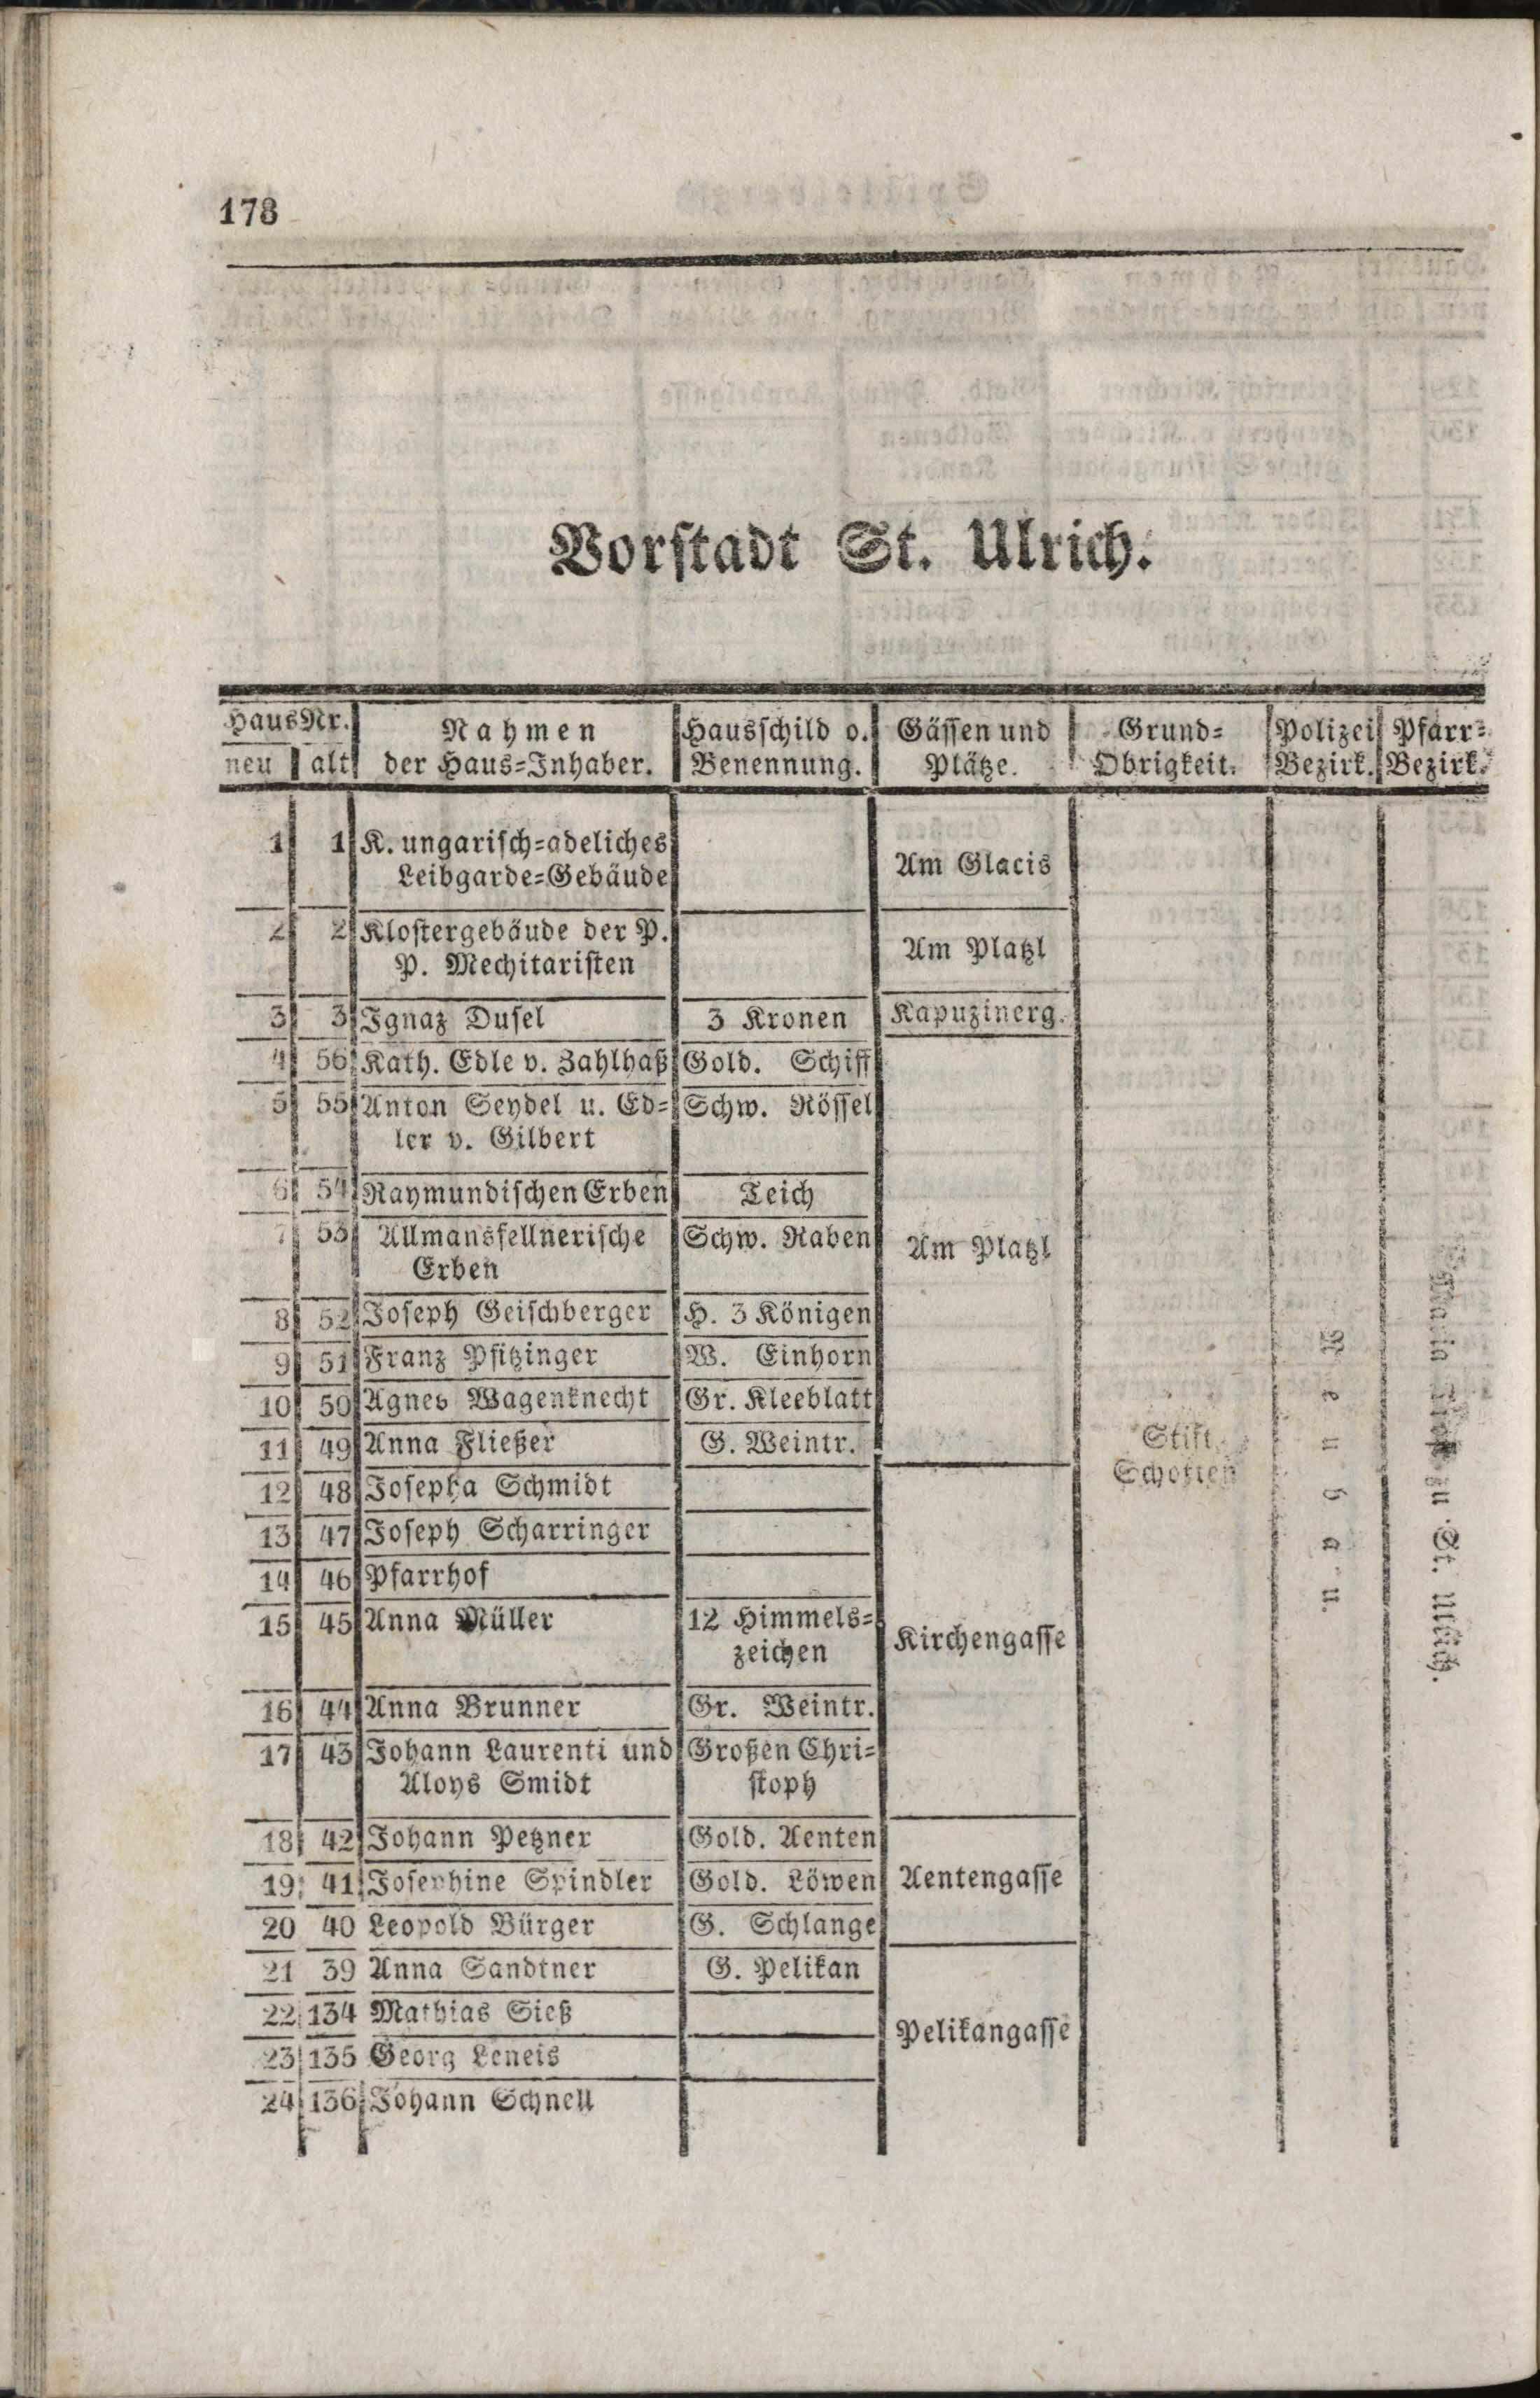 178
Vorstadt St. Ulrich.
Haus Nr. Nahmen Hausschild o. Gässen und Grund= Polizei Pfarr=
neu alt der Haus=Inhaber. Benennung. Plätze. Obrigkeit. Bezirk. Bezirk.
1 1 K. ungarisch=adeliches
Leibgarde=Gebäude Am Glacis
2 2 Klostergebäude der P.
P. Mechitaristen Am Platzl
3 3 Ignaz Dusel 3 Kronen Kapuzinerg.
4 56 Kath. Edle v. Zahlhaß Gold. Schiff
5 55 Anton Seydel u. Ed= Schw. Rössel
ler v. Gilbert
6 54 Raymundischen Erben Teich
7 53 Allmansfellnerische Schw. Raben Am Platzl
Erben
8 52 Joseph Geischberger H. 3 Königen
9 51 Franz Pfitzinger W. Einhorn
10 50 Agnes Wagenknecht Gr. Kleeblatt
11 49 Anna Fließer G. Weintr. Stift
12 48 Josepha Schmidt Schotten
13 47 Joseph Scharringer
14 46 Pfarrhof
15 45 Anna Müller 12 Himmels= Kirchengasse
zeichen
16 44 Anna Brunner Gr. Weintr.
17 43 Johann Laurenti und Großen Chri=
Aloys Smidt stoph
18 42 Johann Petzner Gold. Aenten
19 41 Josephine Spindler Gold. Löwen Aentengasse
20 40 Leopold Bürger G. Schlange
21 39 Anna Sandtner G. Pelikan
22 134 Mathias Sieß Pelikangasse
23 135 Georg Leneis
24 136 Johann Schnell
Neubau.
Maria zu St. Ulrich.